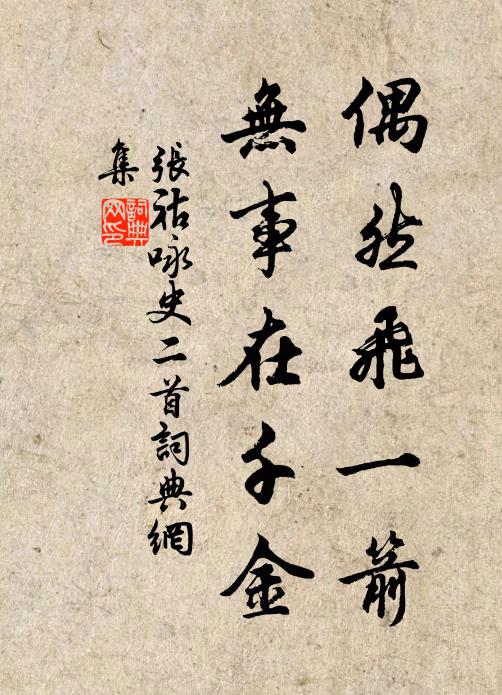 偶然飛一箭
無事在千金
張祜咏史二首詞典網
集
詞典
网印